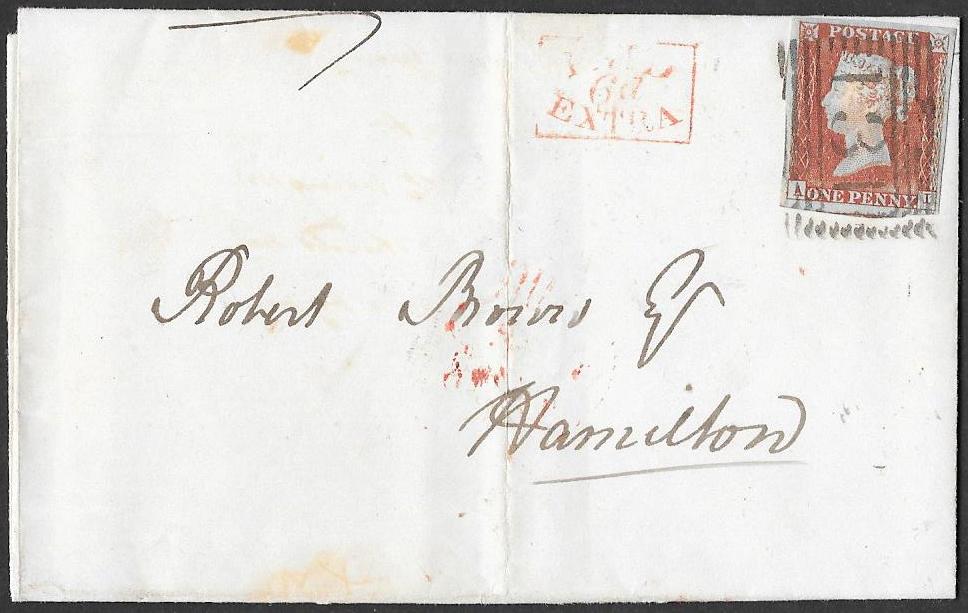 6d
EXTRA
POSTAGE
A ONE PENNY I
Robert Brown Esqr
Hamilton